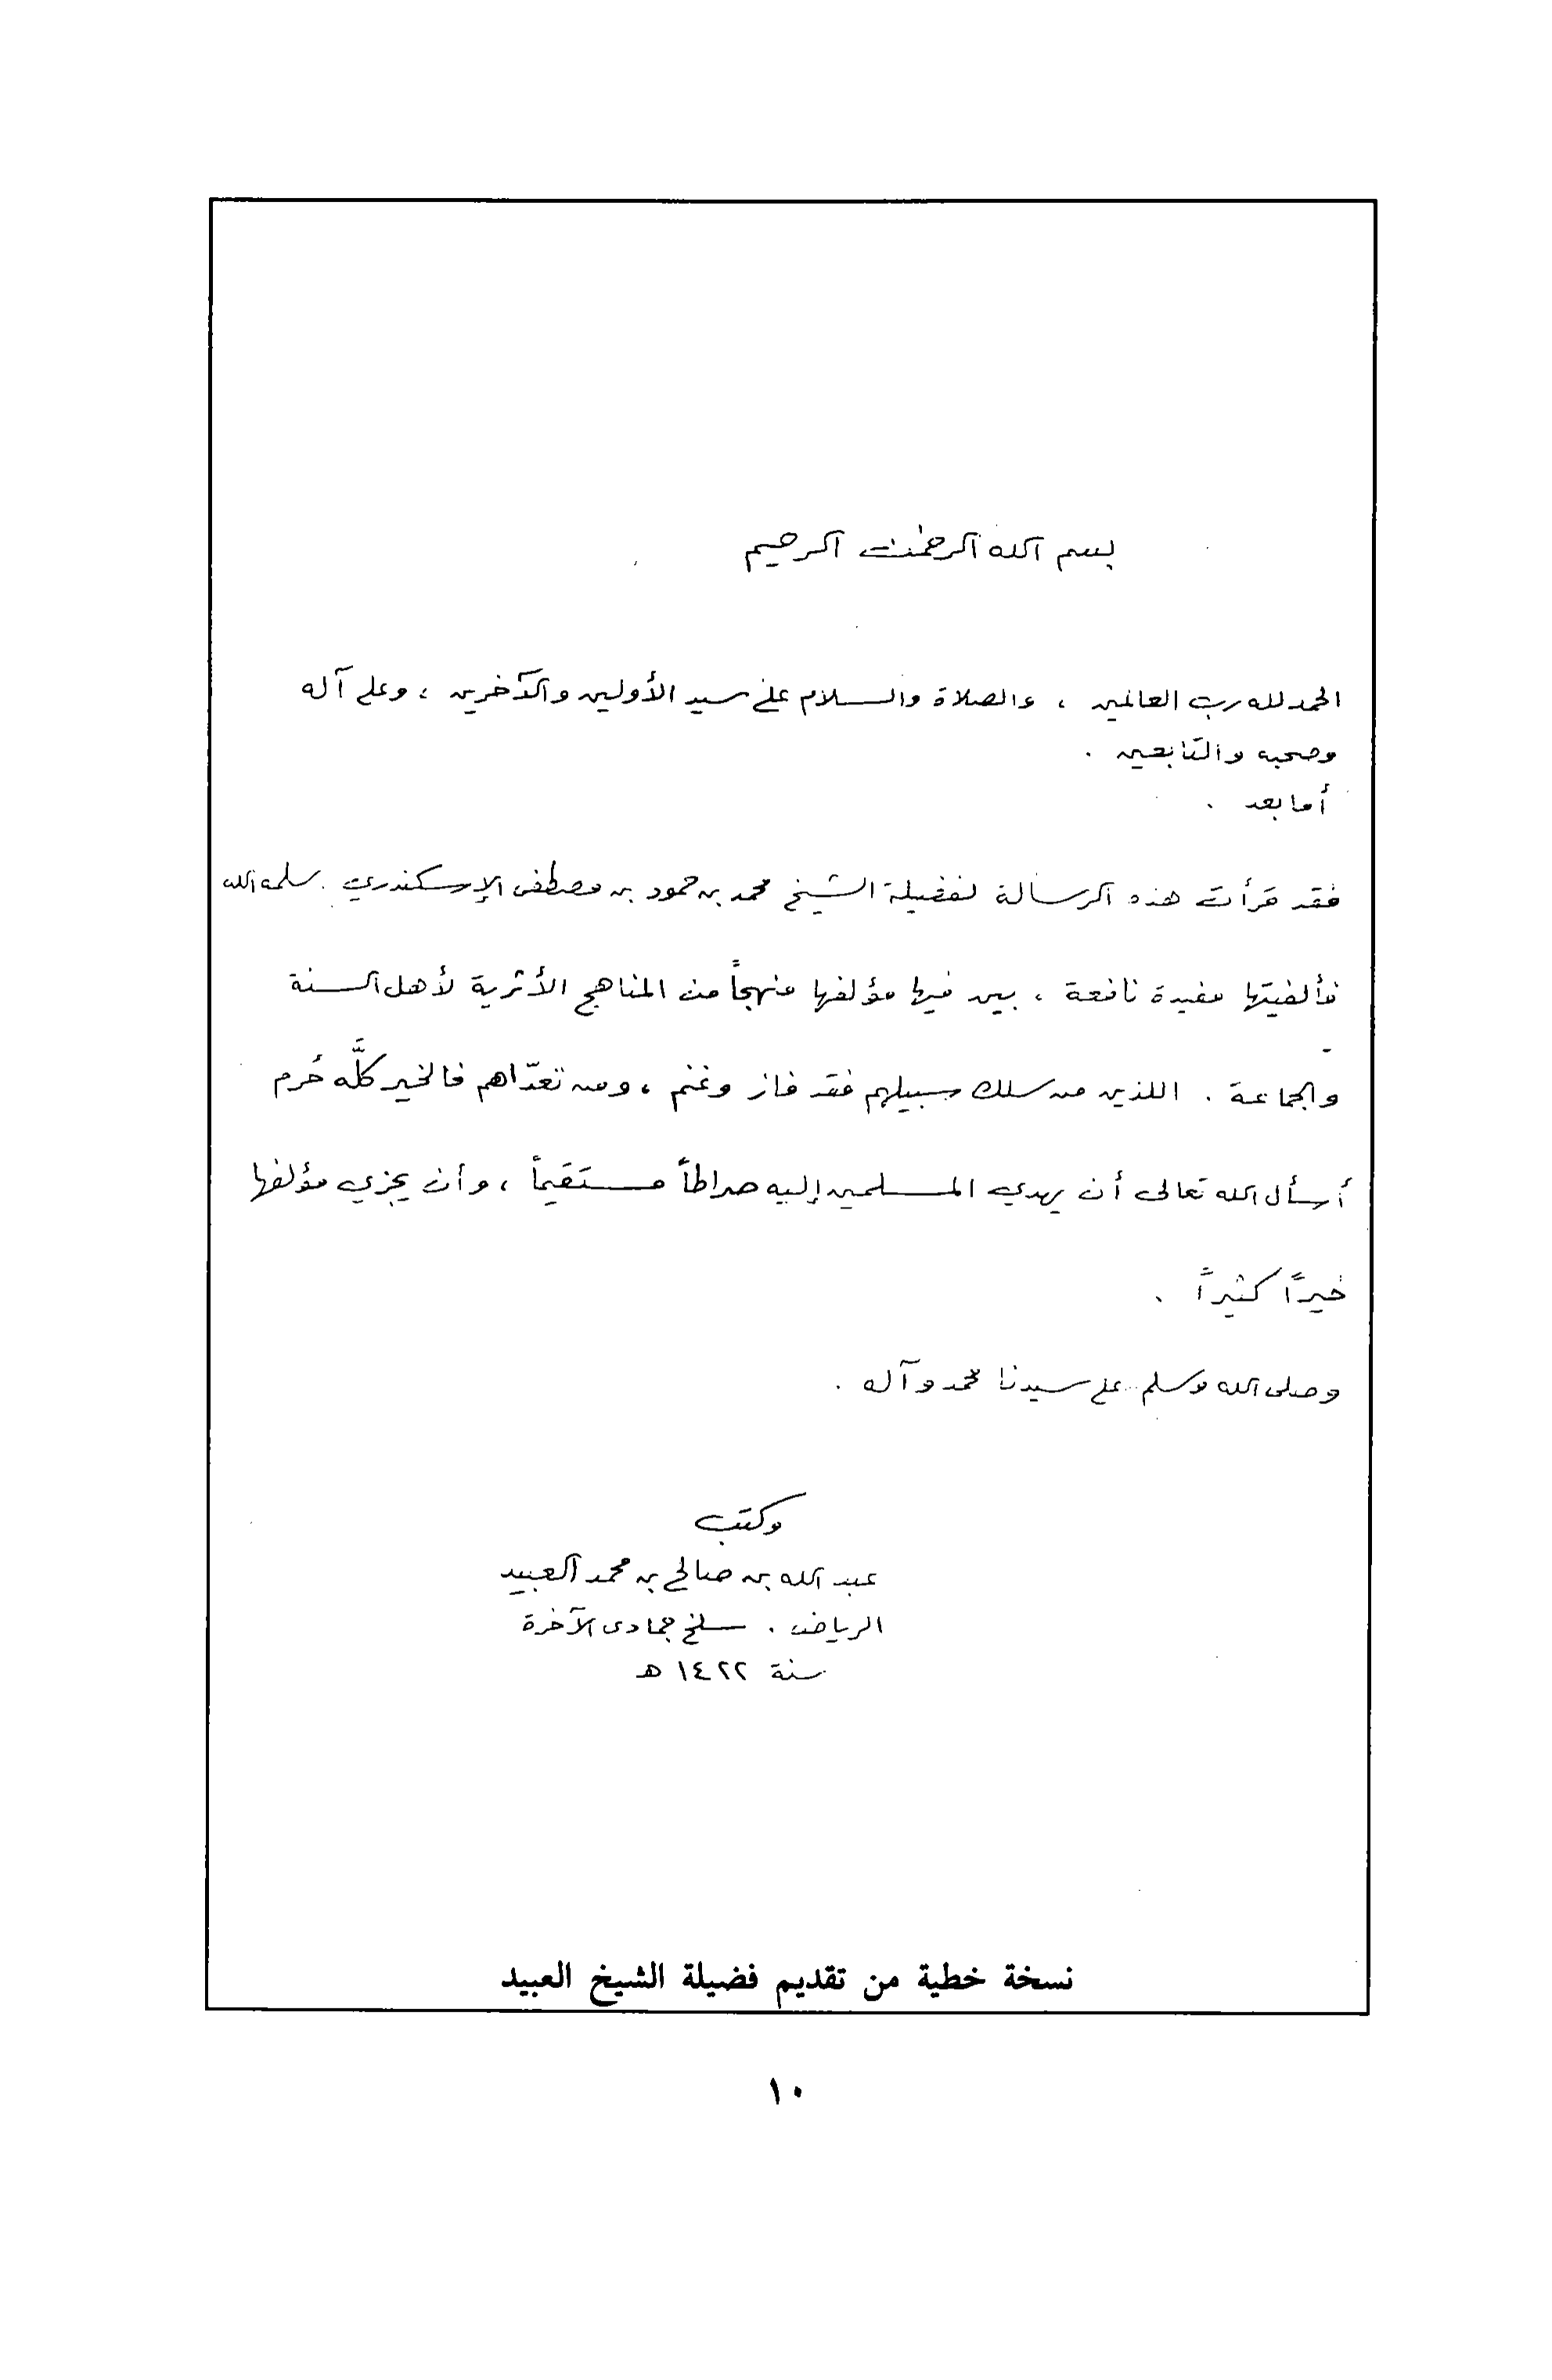 بسم الله الرحمٰن الرحيم
الحمد لله رب العالمين ، والصلاة والسلام على سيد الأولين والآخرين ، وعلى آله
وصحبه والتابعين .
أما بعد .
فقد قرأت هذه الرسالة لفضيلة الشيخ محمد بن حمود بن مصطفى الإسكندري . سلمه الله
فألفيتها مفيدة نافعة ، بين فيها مؤلفها منهجاً من المناهج الأثرية لأهل السنة
والجماعة . اللذين من سلك سبيلهم فقد فاز وغنم ، ومن تعدّاهم فالخير كلَّه حُرم
أسأل الله تعالى أن يهدي المسلمين إليه صراطاً مستقيماً ، وأن يجزي مؤلفها
خيراً كثيراً .
وصلى الله وسلم على سيدنا محمد وآله .
وكتب
عبد الله بن صالح بن محمد العبيد
الرياض . سلخ جمادى الآخرة
سنة ١٤٢٢ هـ
نسخة خطية من تقديم فضيلة الشيخ العبيد
١٠